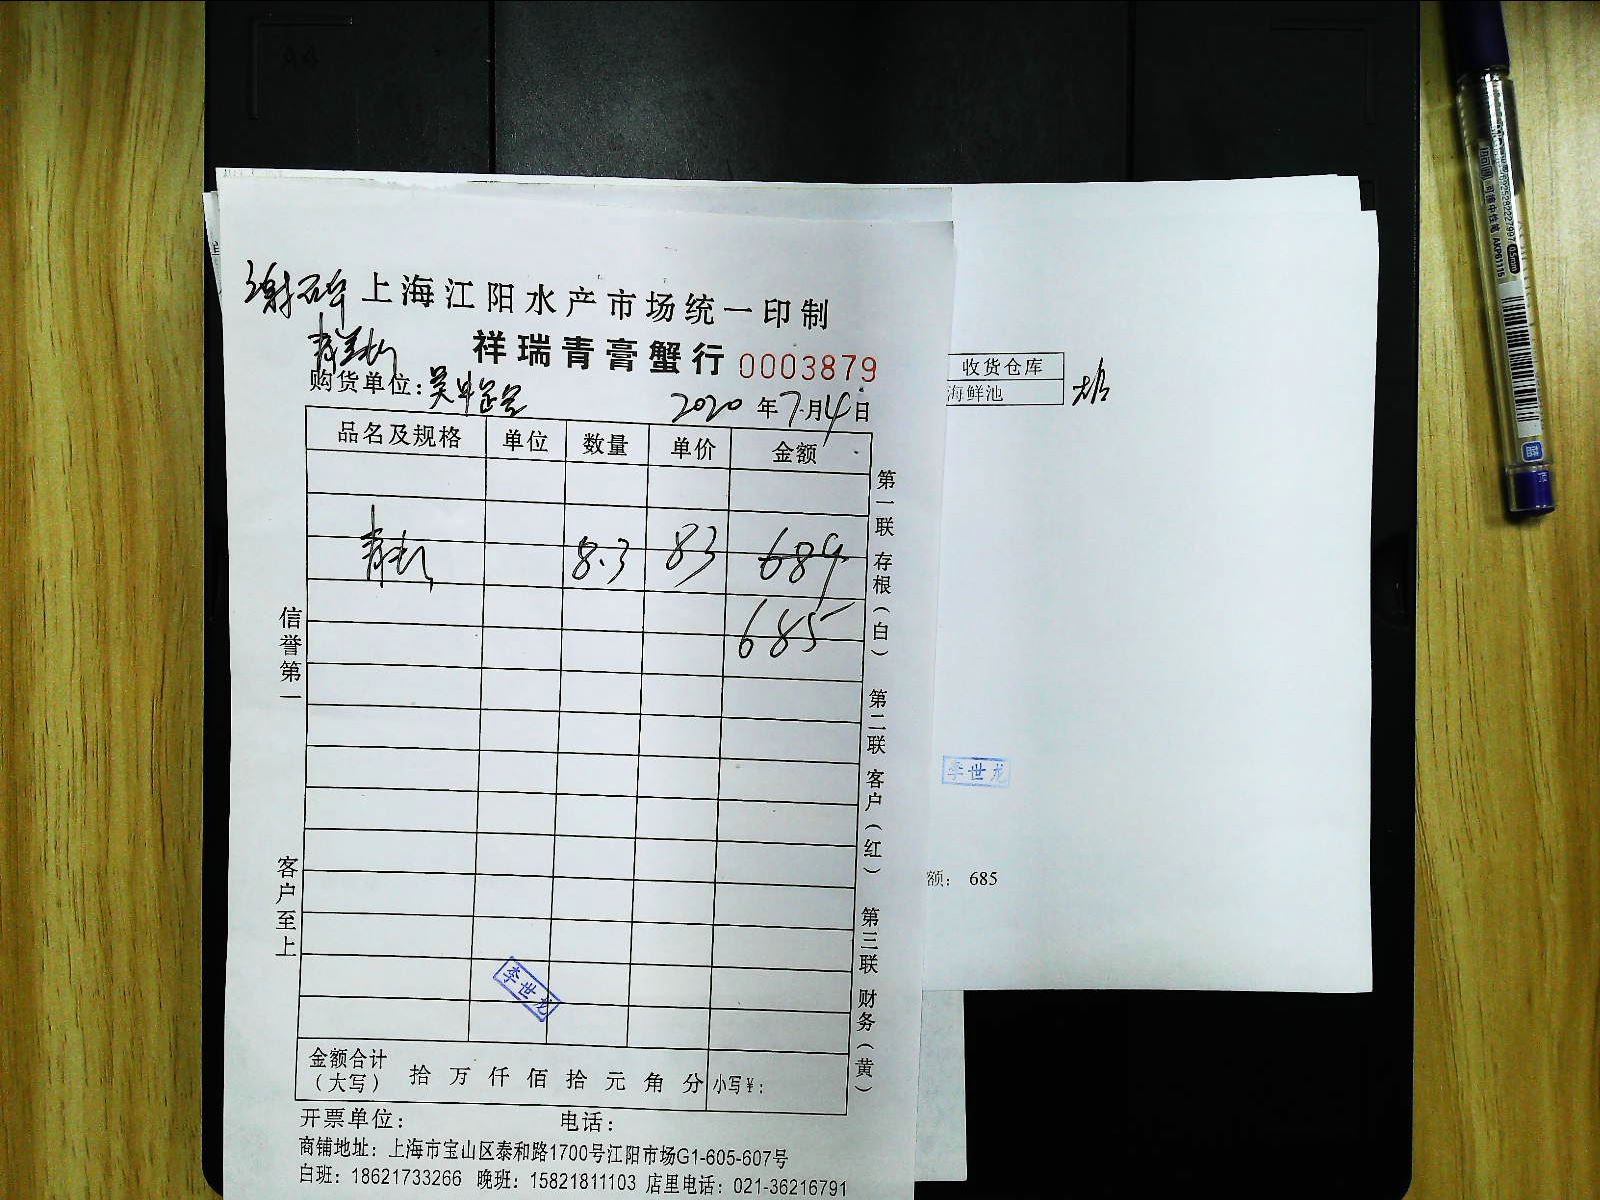 上海江阳水产市场统一印制
祥瑞青膏蟹行 0003879
购货单位:
2020 年 7 月 4 日
品名及规格 单位 数量 单价 金额
8.3 83 689
685
信誉第一
客户至上
第一联 存根(白) 第二联 客户(红) 第三联 财务(黄)
李世龙
金额合计
(大写) 拾 万 仟 佰 拾 元 角 分 小写¥:
开票单位: 电话:
商铺地址: 上海市宝山区泰和路1700号江阳市场G1-605-607号
白班: 18621733266 晚班: 15821811103 店里电话: 021-36216791
收货仓库
海鲜池
李世龙
额: 685
可擦中性笔 AKP61115
0.5mm
蓝